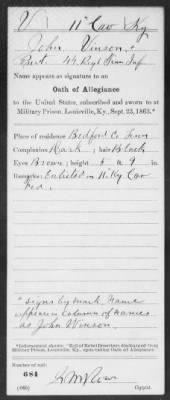 V | 11" Cav | Ky
John Vinson *
Pvt. 44 Regt Tenn Inf
Name appears as signature to an
Oath of Allegiance
to the United States, subscribed and sworn to at
Military Prison, Louisville, Ky., Sept. 23, 1863.*
Place of residence Bedford Co Tenn
Complexion Dark ; hair Black
Eyes Brown ; height 5 a 9 in.
Remarks: Enlisted in 11 Ky Cav
Fed.
* signs by mark. Name
appears in column of names
as John Winson.
Military Prison, Louisville, Ky., upon taking Oath of Allegiance
Number of roll:
684
(069)
Copyist.